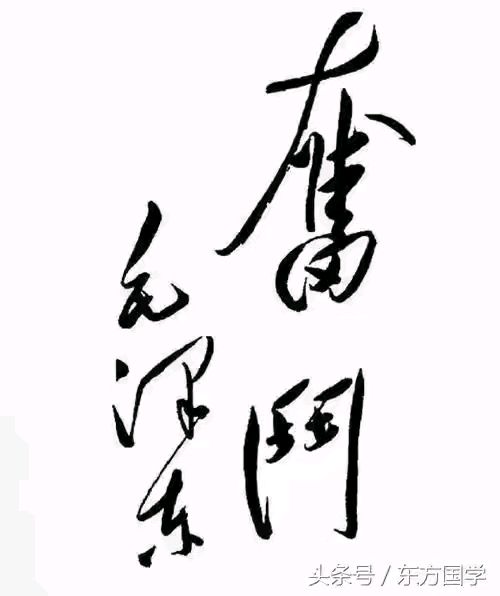 奮鬥
毛泽东
头条号 / 东方国学